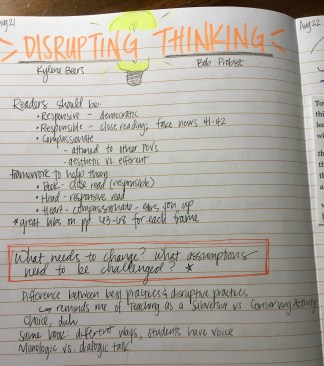 Aug 21
DISRUPTING THINKING
Kylene Beers
Bob Probst
Readers should be:
• Responsive - democratic
• Responsible - close reading; fake news 41-42
• Compassionate
- attuned to other POVs
- aesthetic vs. efferent
framework to help them:
• Book - close read (responsible)
• Head - responsive read
• Heart - compassionate -
* great links on pp. 43-48 for each frame
What needs to change? What assumptions
need to be challenged? *
Difference between best practices & disruptive practices
↳ reminds me of Teaching as a Subversive vs Conserving Activity
Choice, duh
Same book: different ways, students have voice
Monologic vs. dialogic talk
Aug 22